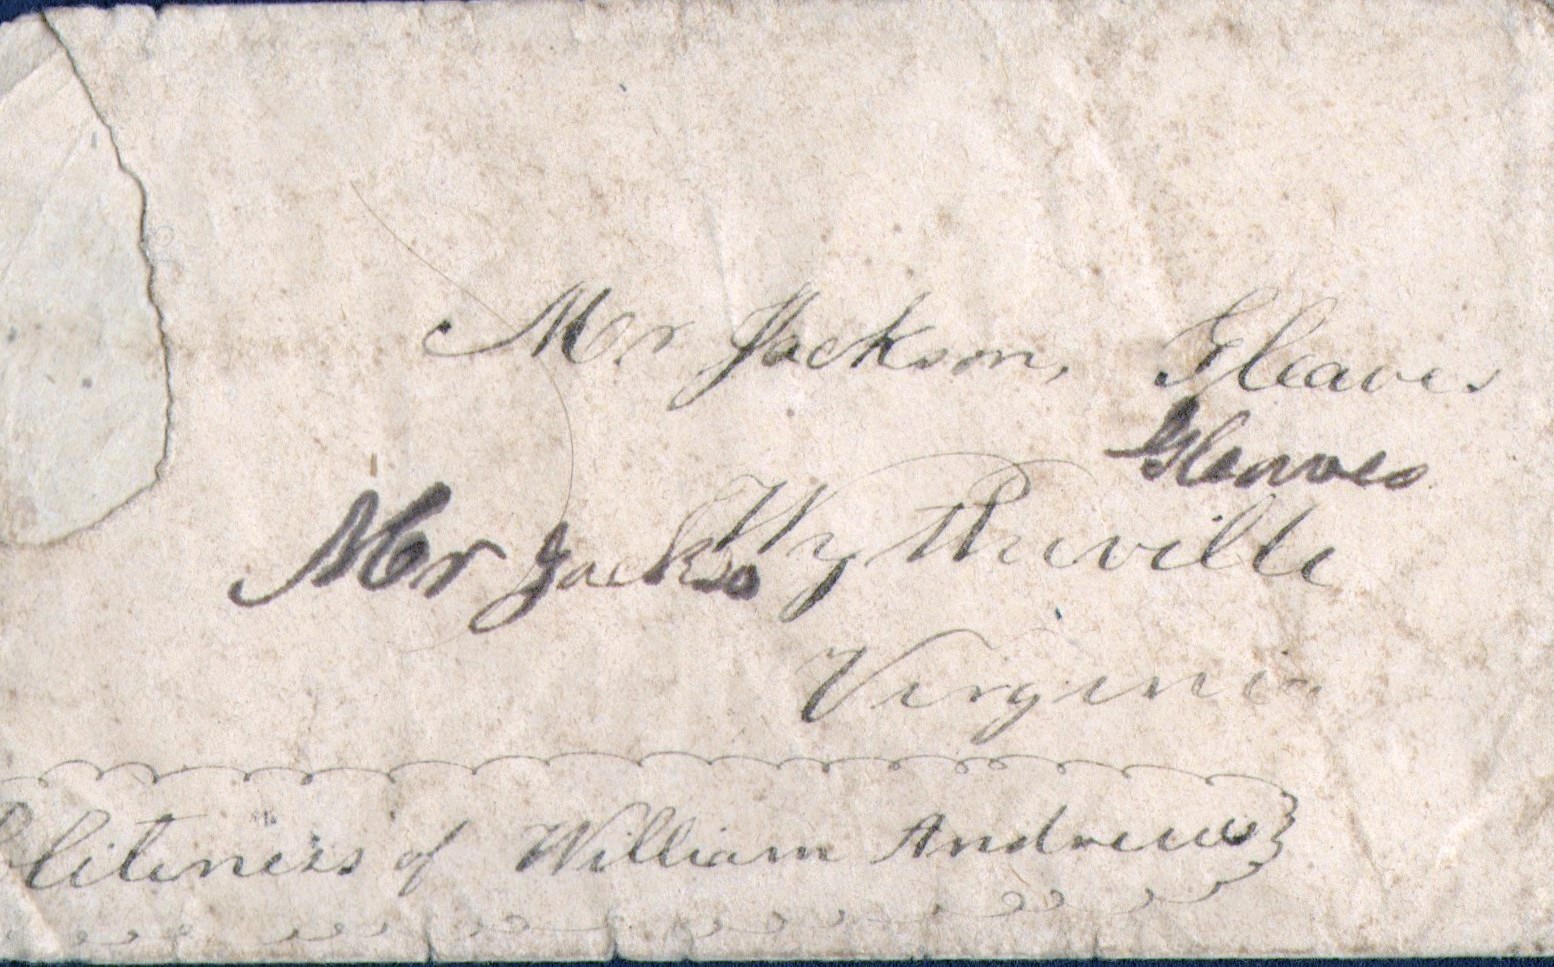 Mr Jackson, Gleaves
Gleaves
Mr Jackso
Wytheville
Virginia
Politeness of William Andrews